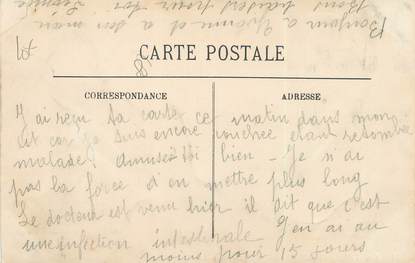 Bonjour à Yvonne et à son mari
Bons baisers pour toi
CARTE POSTALE
CORRESPONDANCE
ADRESSE
J'ai reçu ta carte ce matin dans mon
lit car je suis encore couchée étant retombée
malade. Amuse toi bien – Je n'ai
pas la force d'en mettre plus long
Le docteur est venu hier il dit que c'est
une infection intestinale J'en ai au
moins pour 15 jours